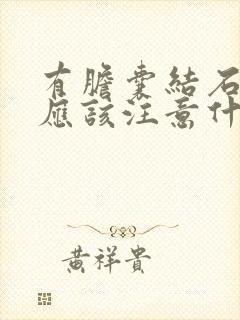 有膽囊結石
應該注意什
黃祥貴